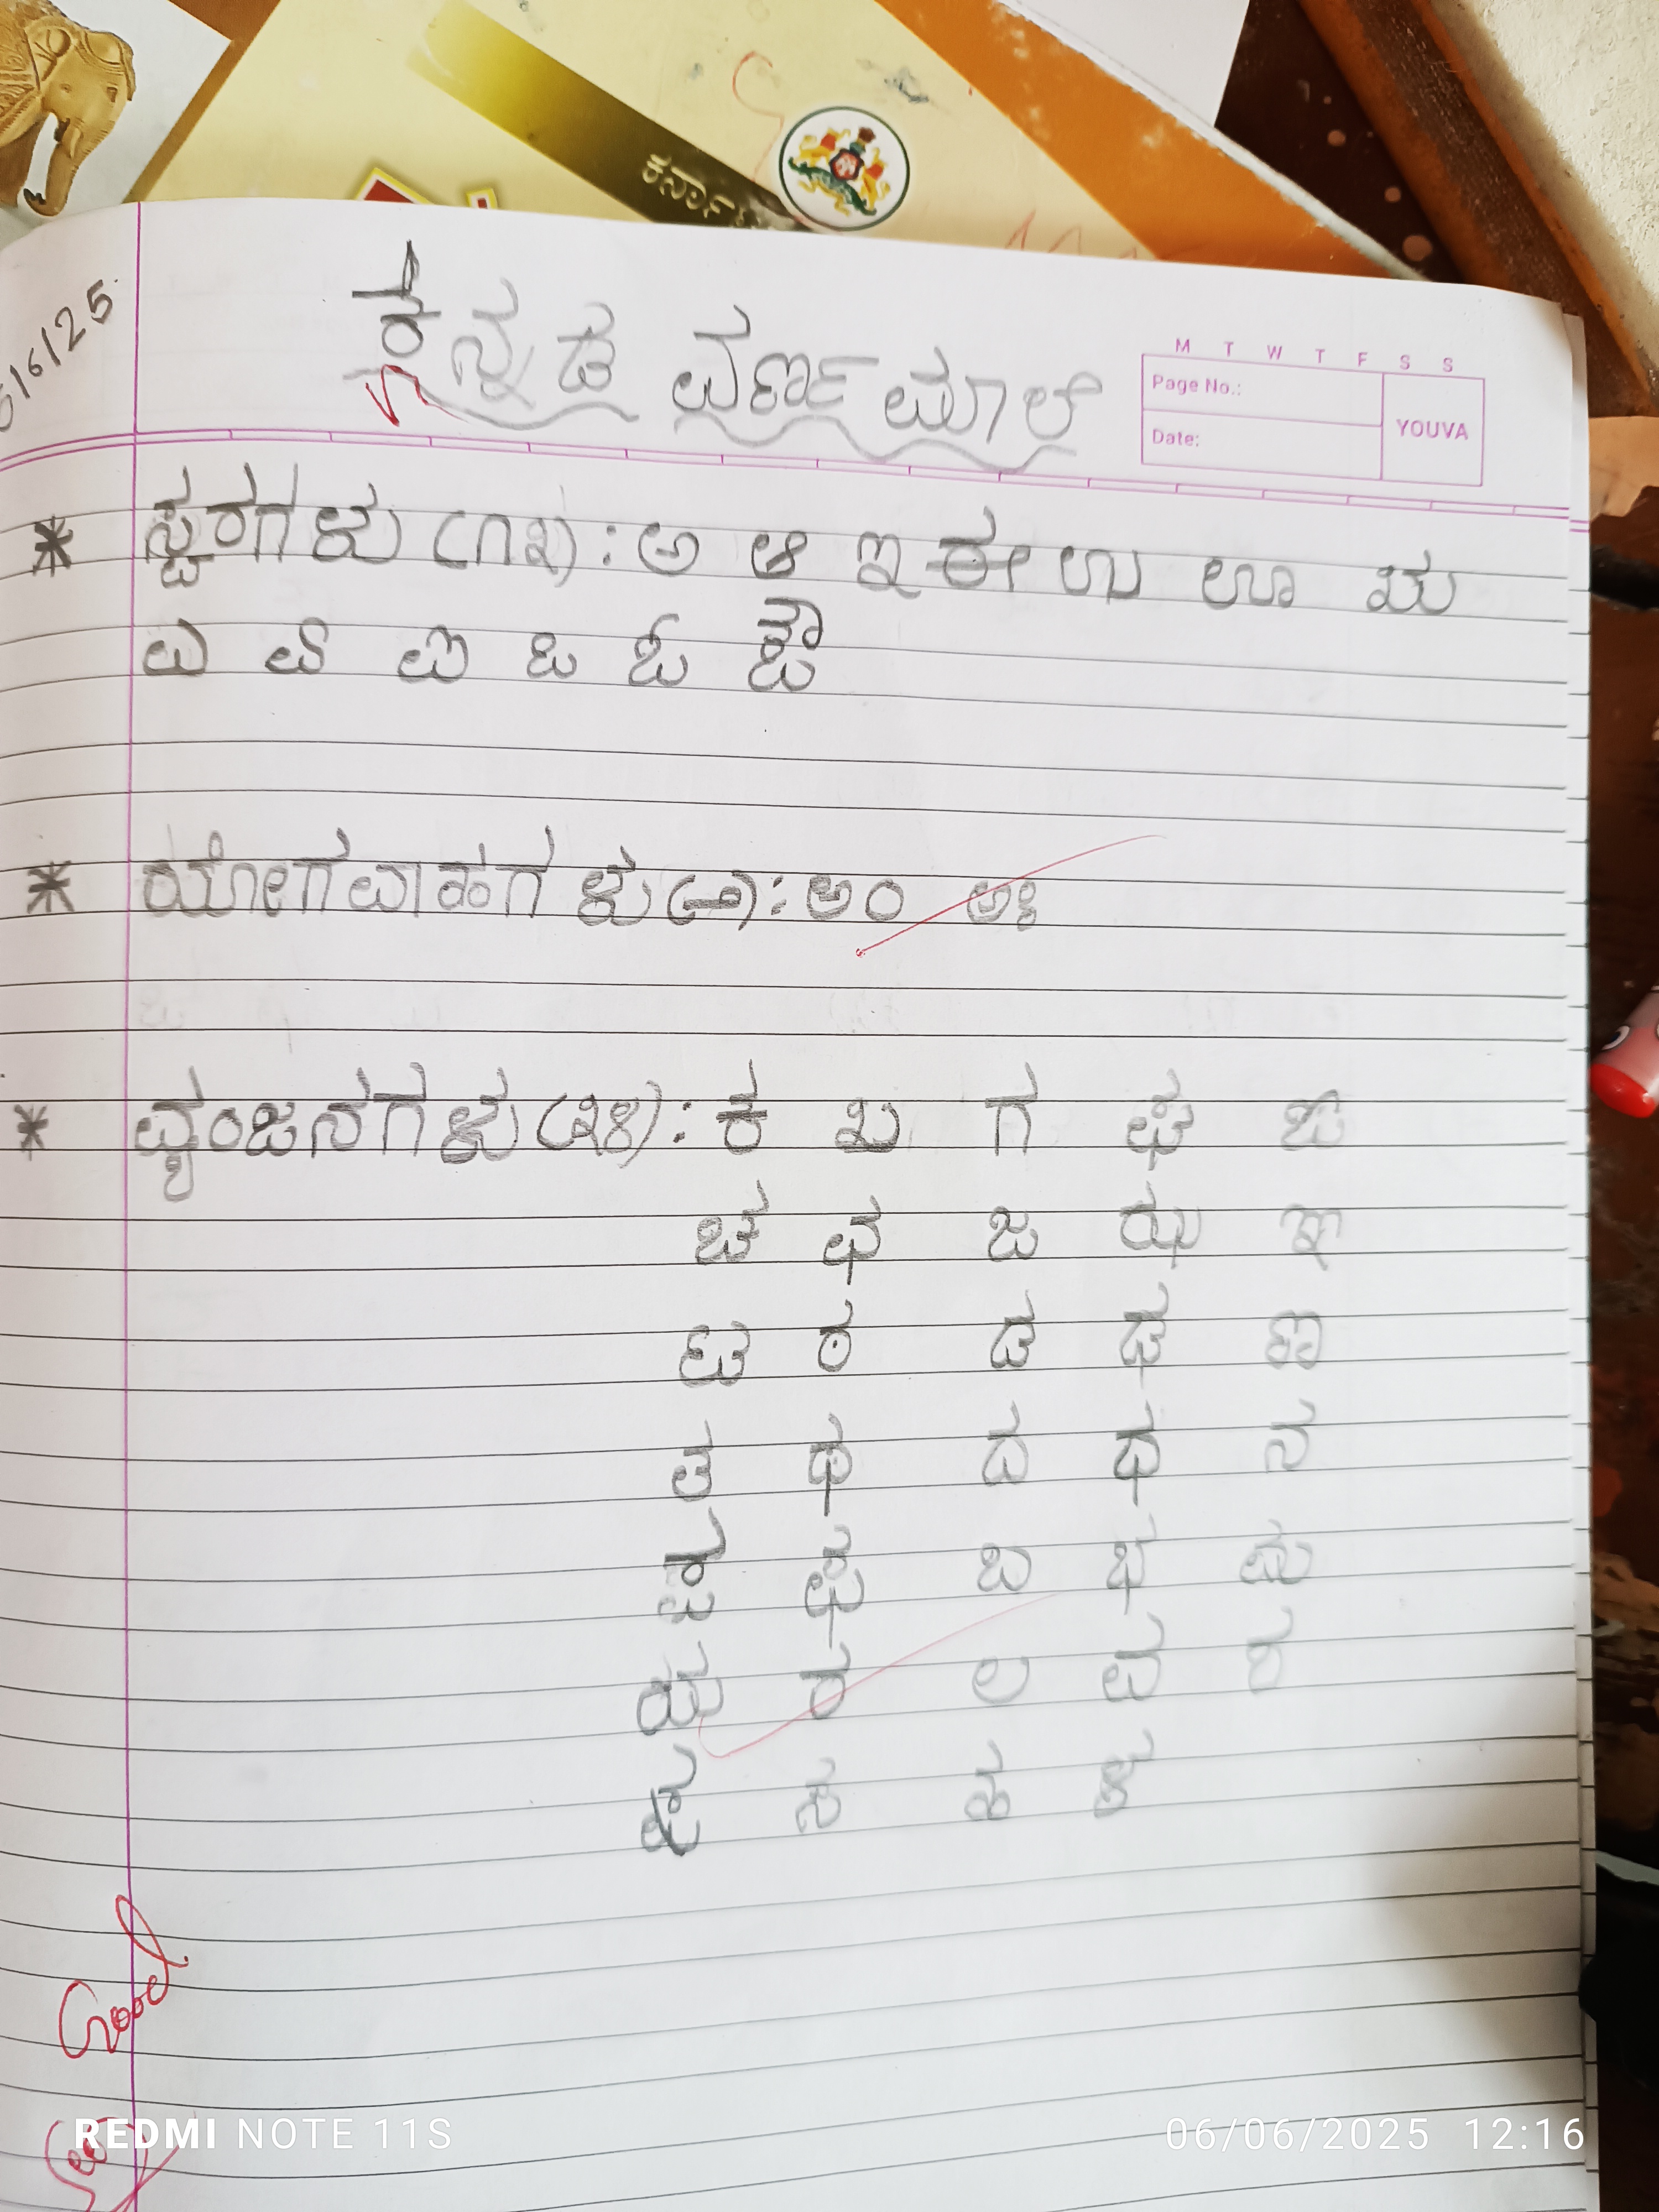 ಕರ್ನಾಟಕ
6/6/25
ಕನ್ನಡ ವರ್ಣಮಾಲೆ
M T W T F S S
Page No.:
YOUVA
Date:
* ಸ್ವರಗಳು (೧೩) : ಅ ಆ ಇ ಈ ಉ ಊ ಋ
ಎ ಏ ಐ ಒ ಓ ಔ
* ಯೋಗವಾಹಗಳು (೨) : ಅಂ ಅಃ
* ವ್ಯಂಜನಗಳು (೩೪) : ಕ ಖ ಗ ಘ ಙ
ಚ ಛ ಜ ಝ ಞ
ಟ ಠ ಡ ಢ ಣ
ತ ಥ ದ ಧ ನ
ಪ ಫ ಬ ಭ ಮ
ಯ ರ ಲ ವ ಶ
ಷ ಸ ಹ ಳ
Good
REDMI NOTE 11S
06/06/2025 12:16